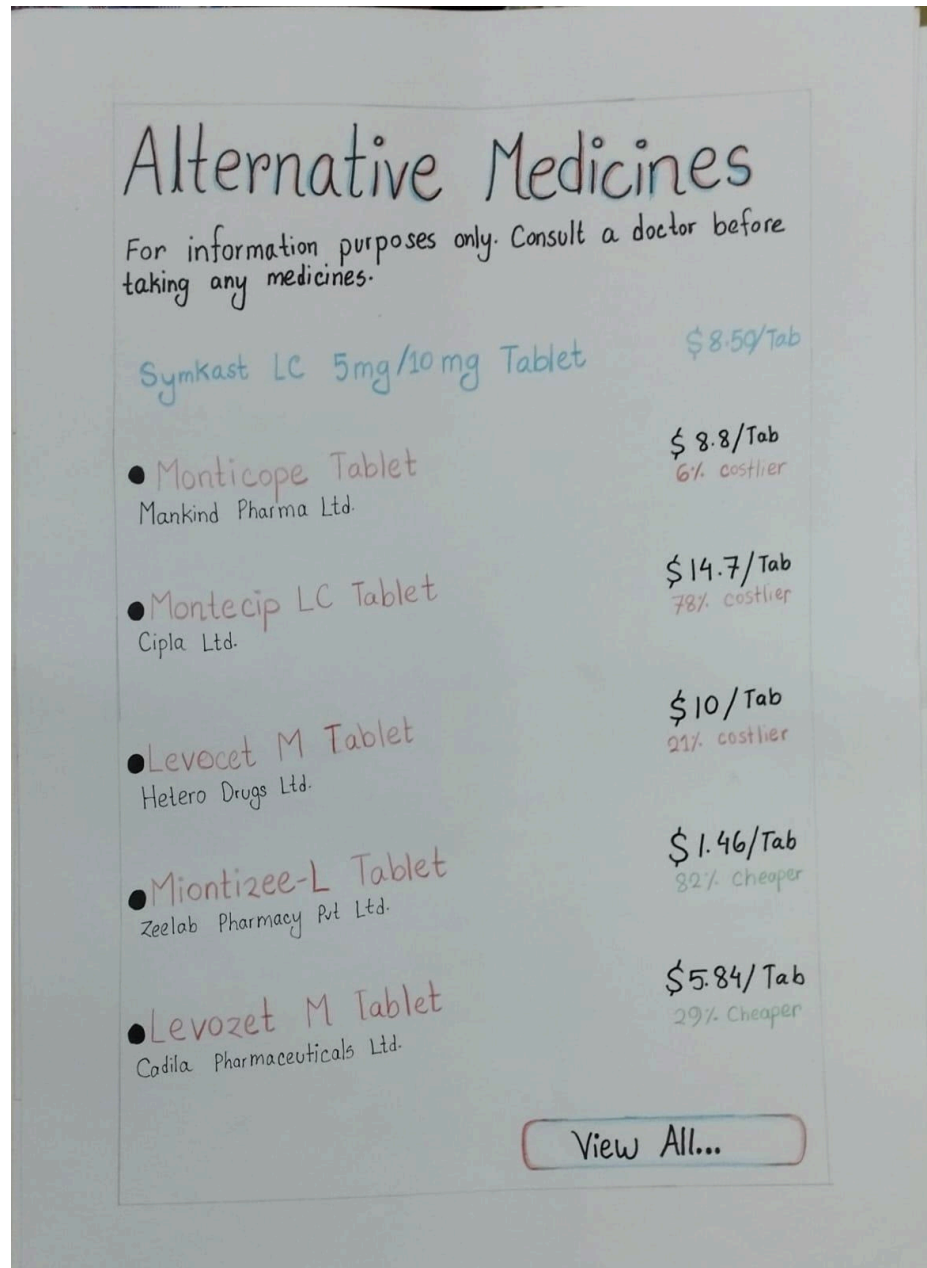 Alternative Medicines
For information purposes only. Consult a doctor before
taking any medicines.
Symkast LC 5mg/10 mg Tablet $8.50/Tab
● Monticope Tablet $8.8/Tab
Mankind Pharma Ltd. 6% costlier
● Montecip LC Tablet $14.7/Tab
Cipla Ltd. 78% costlier
● Levocet M Tablet $10/Tab
Hetero Drugs Ltd. 21% costlier
● Miontizee-L Tablet $1.46/Tab
Zeelab Pharmacy Pvt Ltd. 82% Cheaper
● Levozet M Tablet $5.84/Tab
Cadila Pharmaceuticals Ltd. 29% Cheaper
View All...